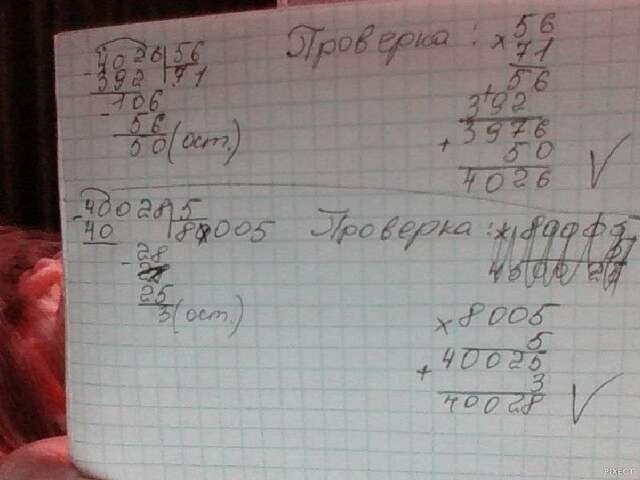 4026 56
- 392 71
- 106
56
50 (ост.)
Проверка: × 56
71
56
392
3976
+ 50
4026
- 40028 5
40 8005
- 28
25
3 (ост.)
Проверка: ×
× 8005
5
40025
+ 3
40028
PIXECT